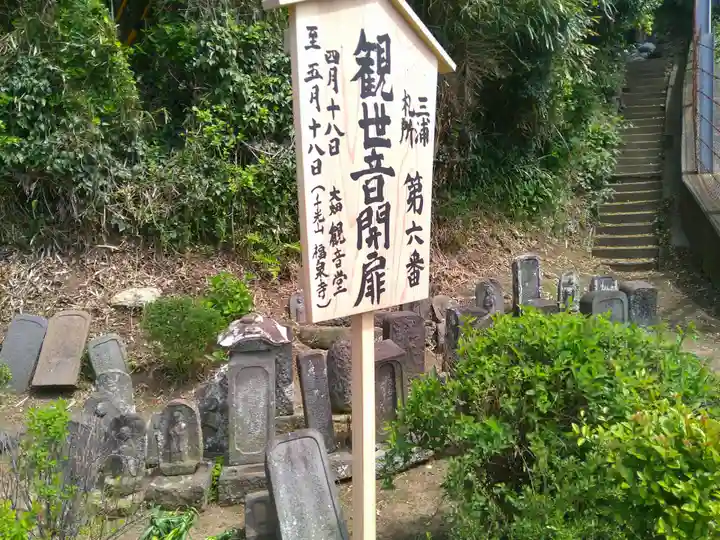 三浦札所 第六番
観世音開扉
四月十八日
至 五月十八日
観音堂
(千光山 福泉寺)